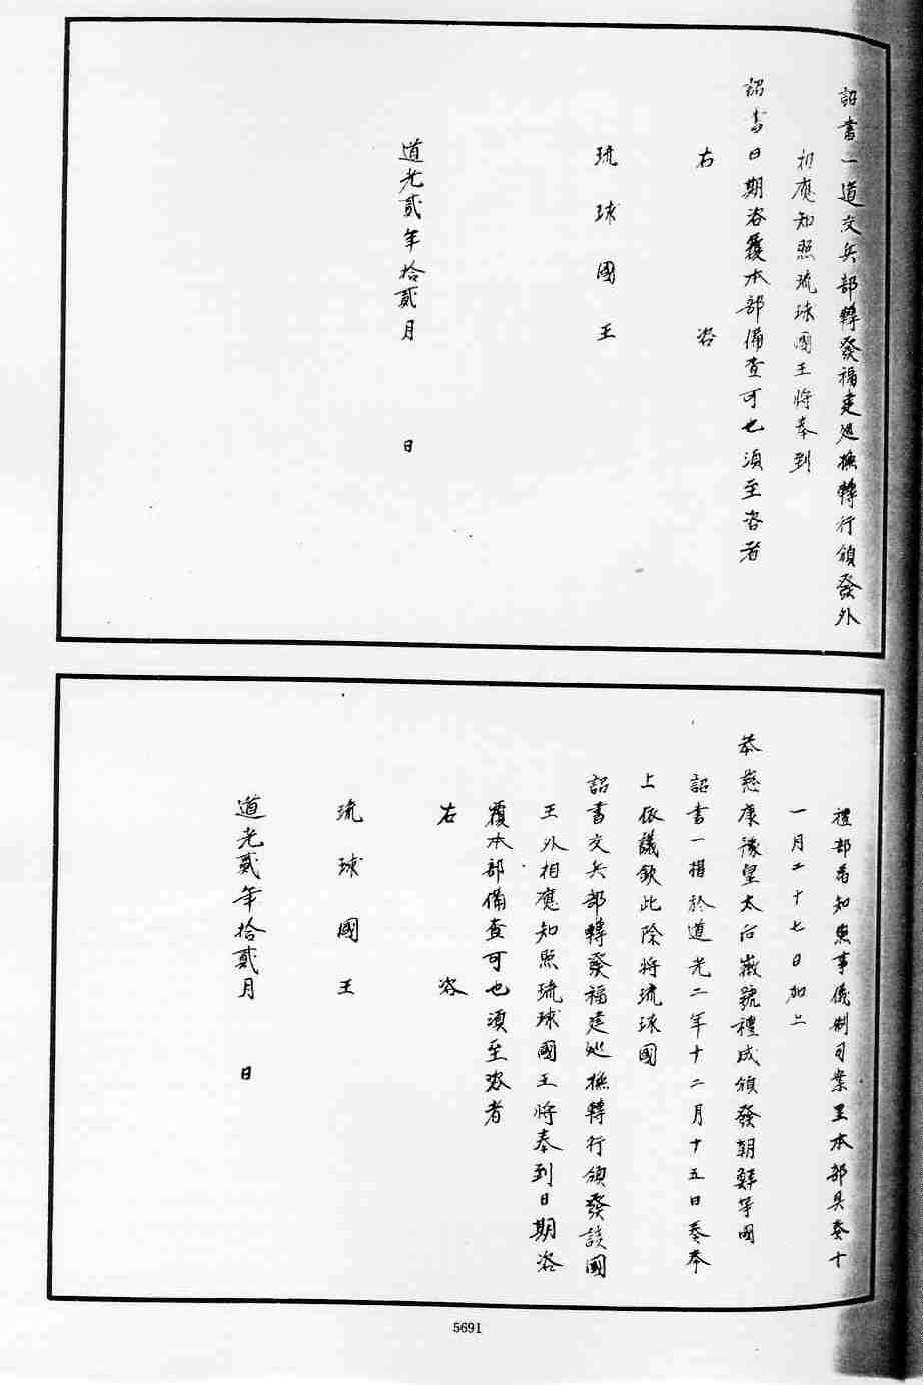 詔書一道交兵部轉發福建巡撫轉行頒發外
相應知照琉球國王將奉到
詔書日期咨覆本部備查可也須至咨者
右咨
琉球國王
道光貳年拾貳月 日
禮部為知照事儀制司案呈本部具奏十
一月二十七日加上
恭慈康豫皇太后徽號禮成頒發朝鮮等國
詔書一摺於道光二年十二月十五日奏奉
上依議欽此除將琉球國
詔書交兵部轉發福建巡撫轉行頒發該國
王外相應知照琉球國王將奉到日期咨
覆本部備查可也須至咨者
右咨
琉球國王
道光貳年拾貳月 日
5691